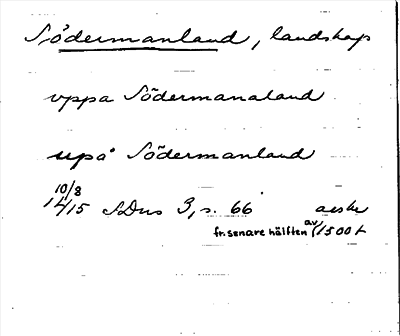 Södermanland, landskap
vppa Södermanaland
upå Södermanland
10/8
1415 SDns 3, s. 66 avskr
fr. senare hälften av 1500 t